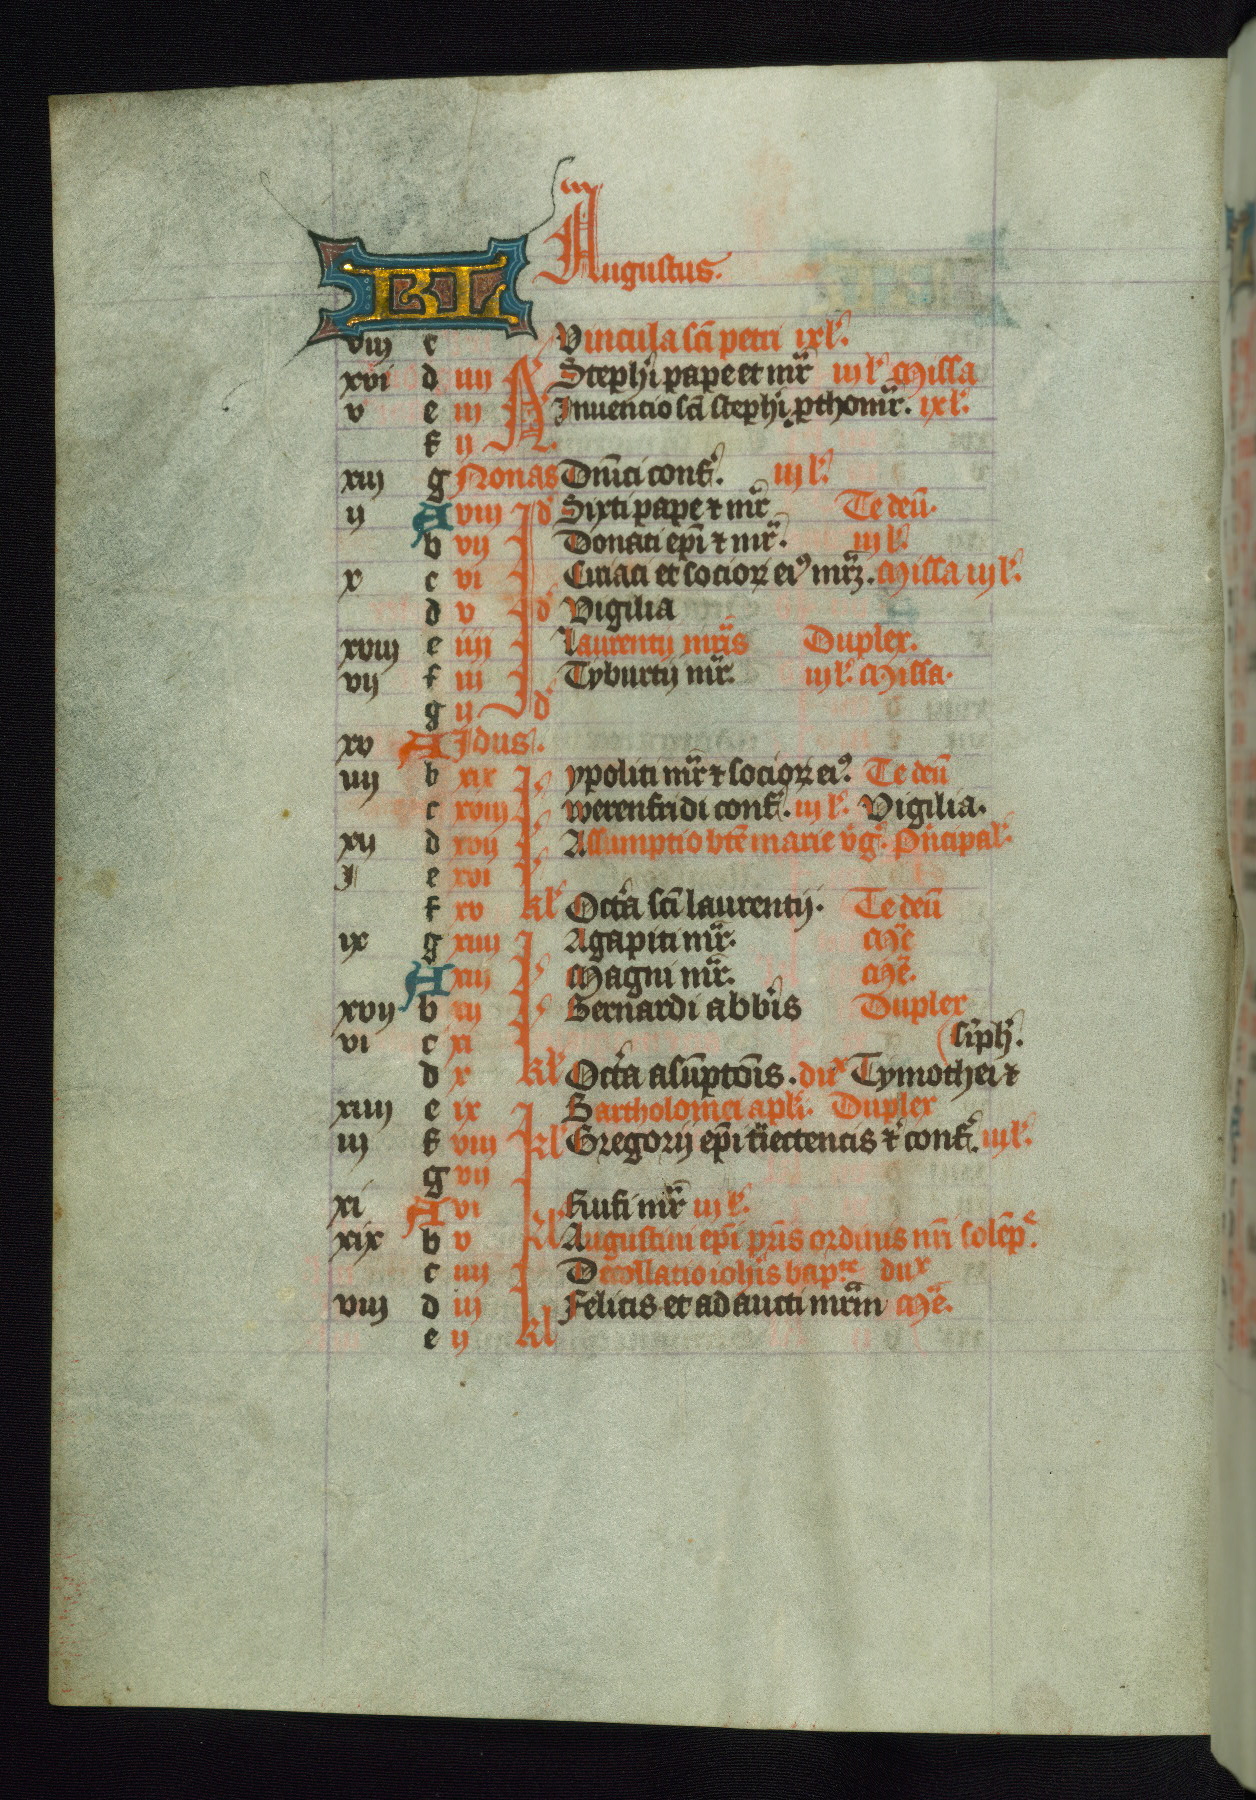 KL Augustus.
viij c Vincula scī petri ixl᷑.
xvi d iiij N Stephi pape et mr̄ iij l᷑ Missa
v e iij Inuentio scī stephi ꝓthomr̄. ixl᷑.
f ij N.
xiij g Nonas Dn̄ici conf᷑. iij l᷑.
ij A viij Id᷑ Sixti pape ⁊ mr̄ Te deū.
b vij Donati ep̄i ⁊ mr̄. iij l᷑.
x c vi Ciriaci et socioꝝ eiꝰ mrꝫ. Missa iij l᷑.
d v Id᷑ Vigilia
xviij e iiij Laurentij mr̄is Duplex.
vij f iij Tyburtij mr̄. iij l᷑. Missa.
g ij Id᷑
xv A Idus.
iiij b xix ypoliti mr̄ ⁊ socioꝝ eiꝰ. Te deū
c xviij werenfridi conf᷑. iij l᷑. Vigilia.
xij d xvij Assumptio bt̄e marie v̄g᷑. Pn̄cipal᷑.
j e xvi
f xv kl᷑ Octā scī laurentij. Te deū
ix g xiiij Agapiti mr̄. Me᷑
A xiij Magni mr̄. Me᷑.
xvij b xij Bernardi abb̄is Duplex
vi c xi sīph᷑.
d x kl᷑ Octā asūptōis. dux Tymothei ⁊
xiiij e ix Bartholomei apl᷑i. Duplex
iij f viij kl᷑ Gregorij ep̄i t̄iectensis ⁊ conf᷑. iijl᷑.
g vij
xi A vi Rufi mr̄ iij l᷑.
xix b v kl᷑ Augustini ep̄i pr̄is ordinis nr̄i solēp᷑.
c iiij Decollatio ioh̄is bap.te dux
viij d iij Felicis et adaucti mr̄m Me᷑.
e ij kl